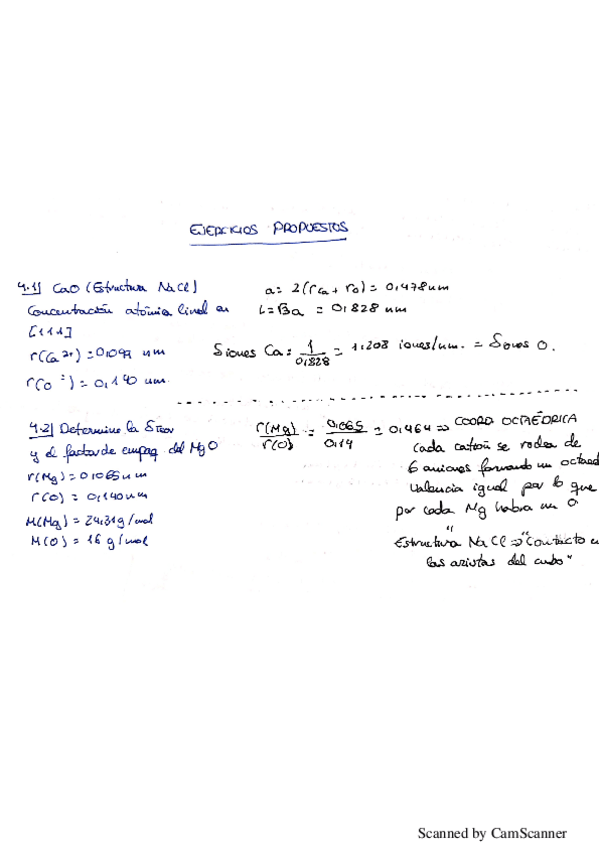 EJERCICIOS PROPUESTOS
4.1] CaO (Estructura NaCl)
Concentración atómica lineal en
[111]
r(Ca²⁺) = 0,099 nm
r(O⁼) = 0,140 nm.
a = 2(rCa + rO) = 0,478 nm
L = √3a = 0,828 nm
δiones Ca = 1/0,828 = 1.208 iones/nm. = δiones O.
4.2] Determine la δteor
y el factor de empaq. del MgO
r(Mg) = 0,065 nm
r(O) = 0,140 nm
M(Mg) = 24,31 g/mol
M(O) = 16 g/mol
r(Mg)/r(O) = 0,065/0,14 = 0,464 ⇒ COORD OCTAÉDRICA
cada catión se rodea de
6 aniones formando un octaed
Valencia igual por lo que
por cada Mg habra un O
"
Estructura NaCl ⇒ "Contacto e
las aristas del cubo"
Scanned by CamScanner